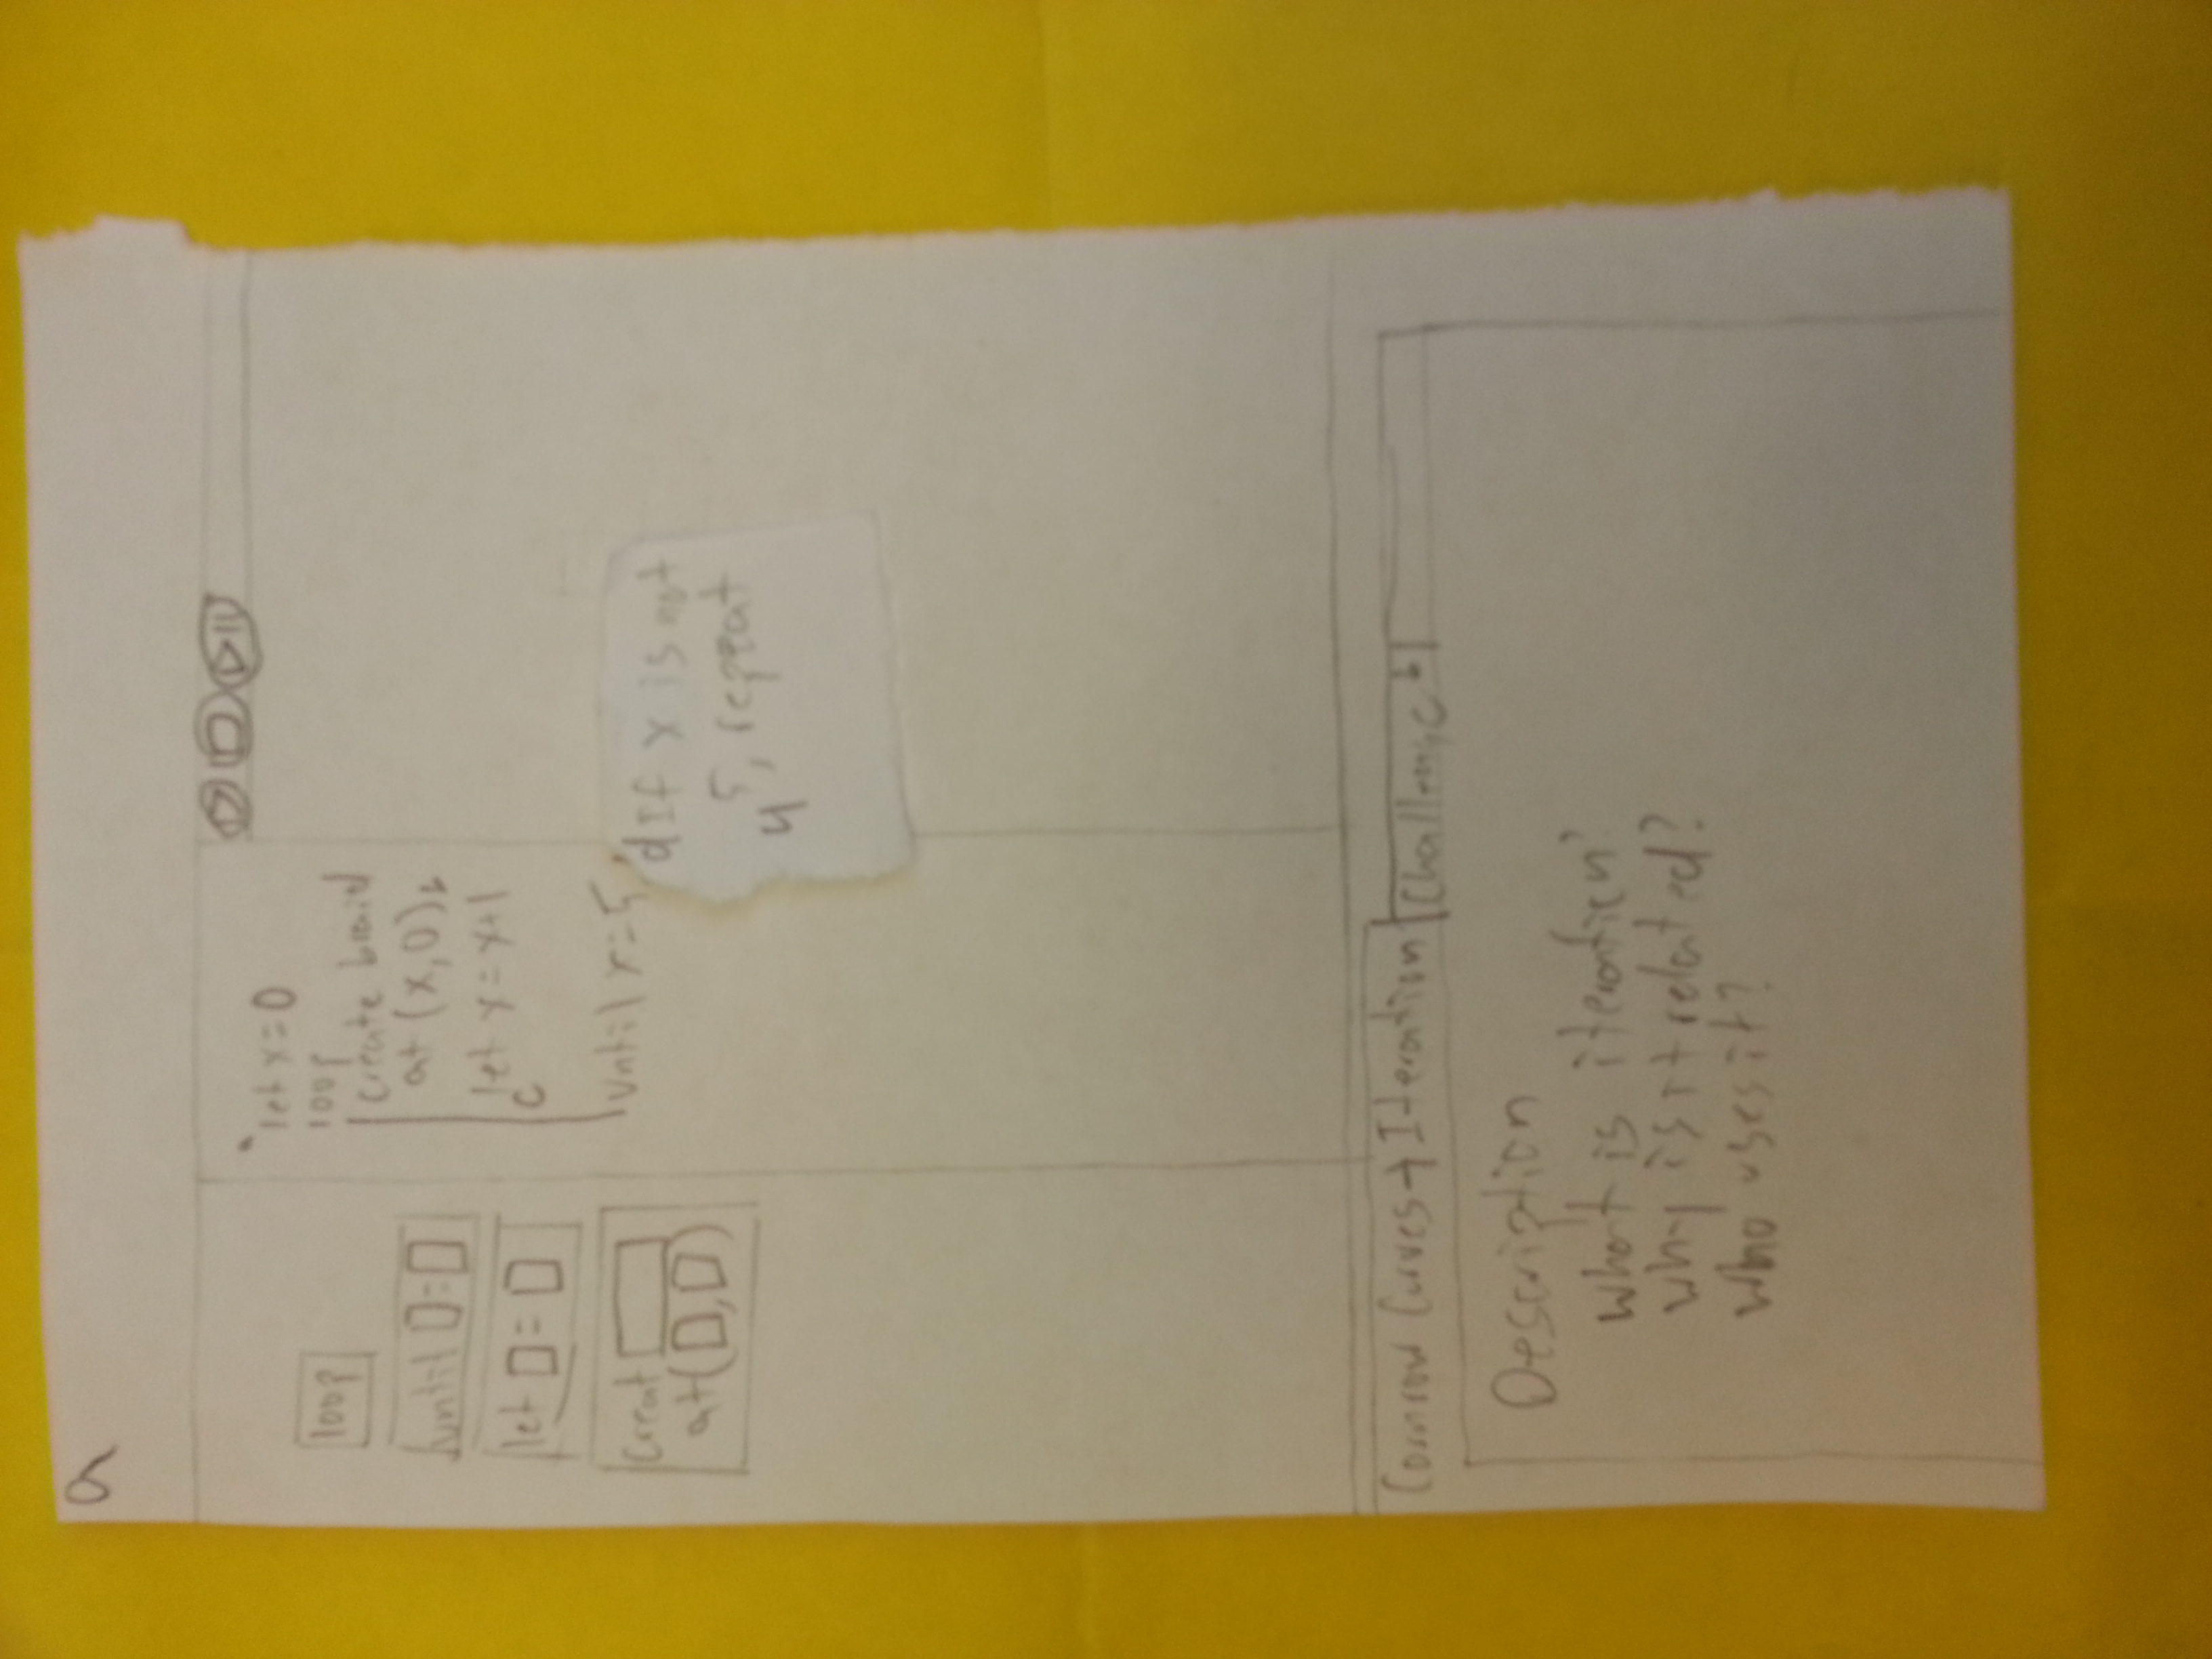 a
loop
until =
let =
Creat
at( , )
a
let x=0
loop
create braid
at (x,0)b
let x=x+1
c
until x=5
d If x is not
5, repeat
4
Cornrow Curves → Iteration
Challenge b
Description
What is iteration?
Why is it related?
Who uses it?